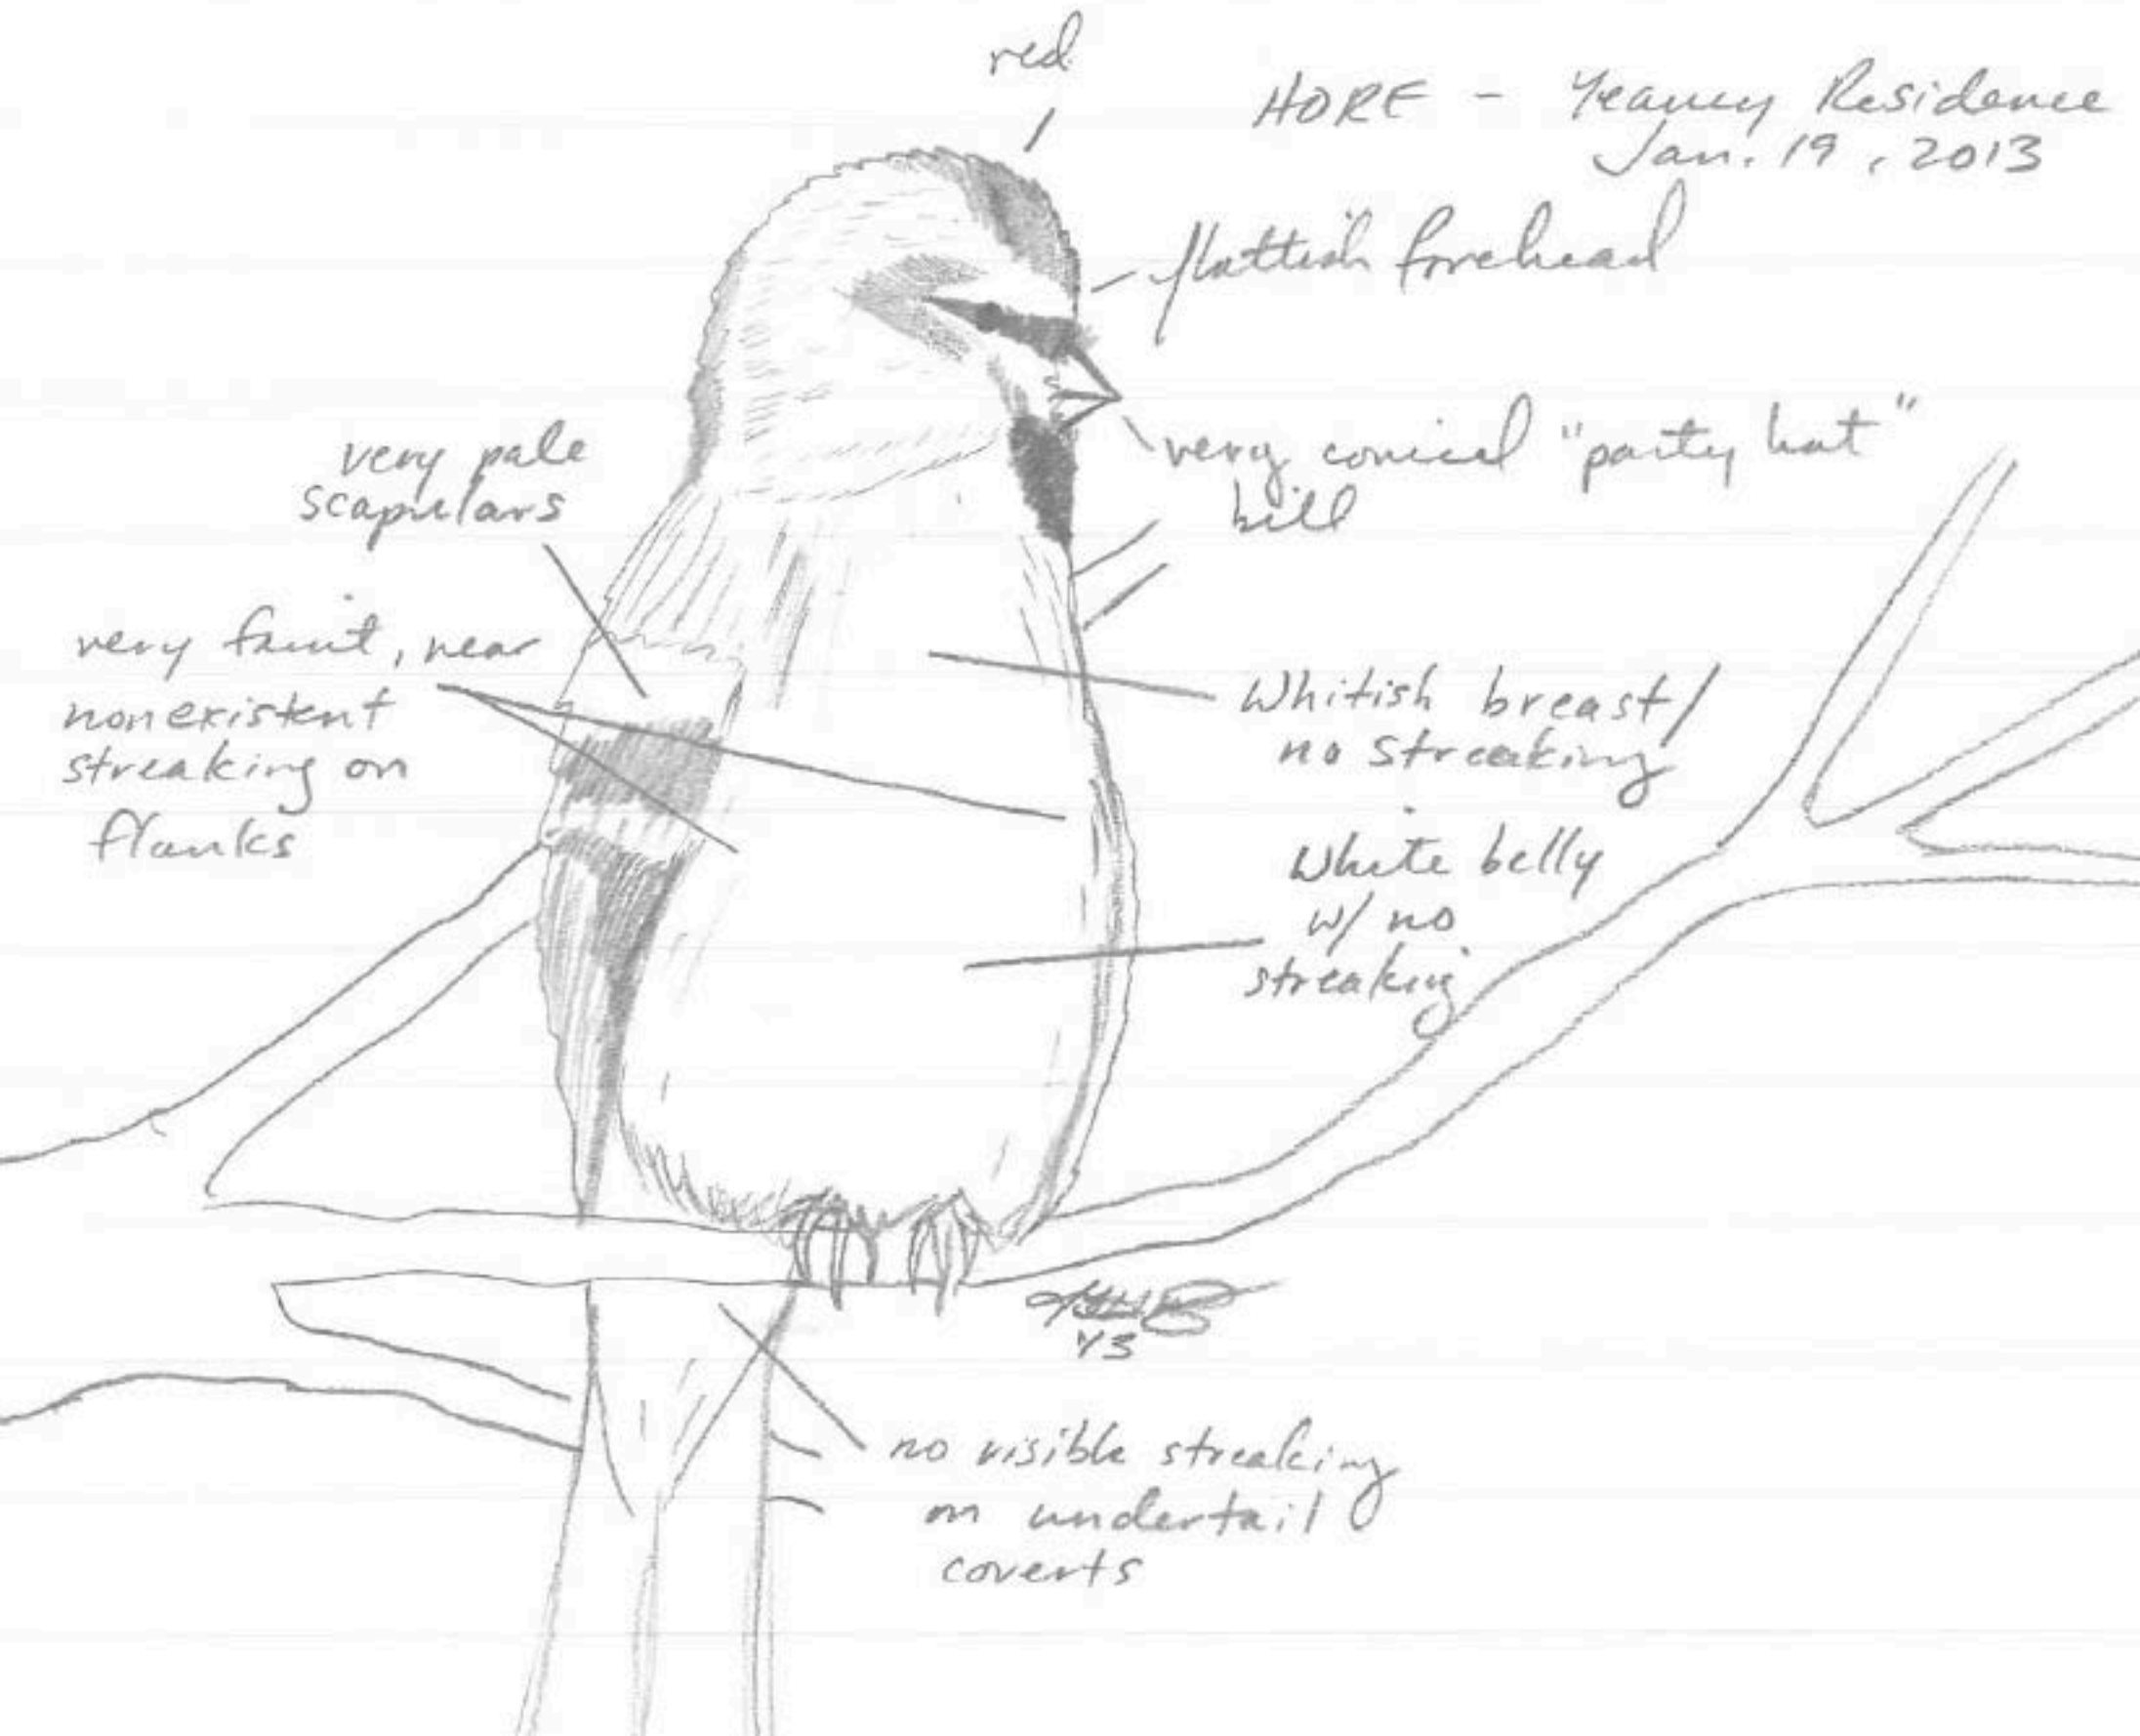 red
HORE - Yeancy Residence
Jan. 19, 2013
flattish forehead
very conical "party hat"
bill
very pale
scapulars
very faint, near
nonexistent
streaking on
flanks
Whitish breast/
no streaking
White belly
w/ no
streaking
1/3
no visible streaking
on undertail
coverts